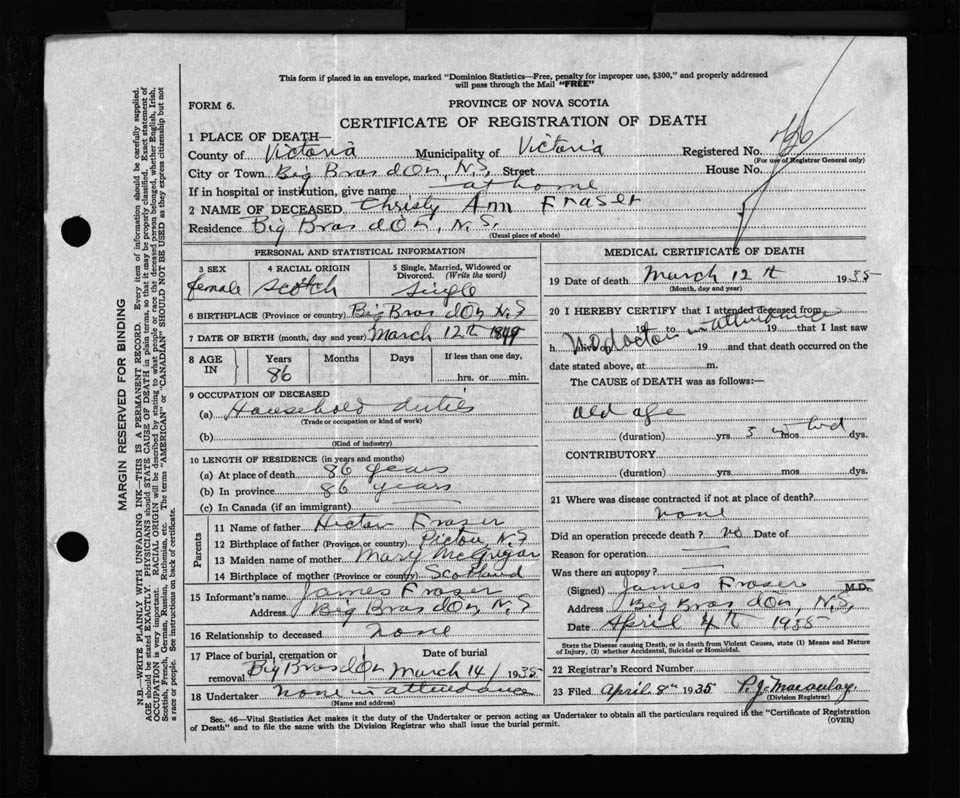 This form if placed in an envelope, marked "Dominion Statistics—Free, penalty for improper use, $300," and properly addressed
will pass through the Mail "FREE"
FORM 6.
PROVINCE OF NOVA SCOTIA
CERTIFICATE OF REGISTRATION OF DEATH
1 PLACE OF DEATH—
County of Victoria Municipality of Victoria Registered No.
(For use of Registrar General only)
City or Town Big Bras dOr, N.S, Street House No.
If in hospital or institution, give name at home
2 NAME OF DECEASED Christy Ann Fraser
Residence Big Bras dOr, N.S.
(Usual place of abode)
PERSONAL AND STATISTICAL INFORMATION
3 SEX 4 RACIAL ORIGIN 5 Single, Married, Widowed or Divorced. (Write the word)
female Scotch Single
6 BIRTHPLACE (Province or country) Big Bras dOr N.S
7 DATE OF BIRTH (month, day and year) March 12th 1849
8 AGE IN Years Months Days If less than one day,
86 hrs. or min.
9 OCCUPATION OF DECEASED
(a) Household duties
(Trade or occupation or kind of work)
(b)
(Kind of industry)
10 LENGTH OF RESIDENCE (in years and months)
(a) At place of death 86 years
(b) In province 86 years
(c) In Canada (if an immigrant)
Parents
11 Name of father Hector Fraser
12 Birthplace of father (Province or country) Pictou, N.S
13 Maiden name of mother Mary McGrigor
14 Birthplace of mother (Province or country) Scotland
15 Informant's name James Fraser
Address Big Bras dOr, N.S
16 Relationship to deceased none
17 Place of burial, cremation or removal Date of burial
Big Bras dOr March 14/ 1935
18 Undertaker none in attendance
(Name and address)
MEDICAL CERTIFICATE OF DEATH
19 Date of death March 12th 1935
(Month, day and year)
20 I HEREBY CERTIFY that I attended deceased from
19 to in attendance 19 that I last saw
h no doctor 19 and that death occurred on the
date stated above, at m.
The CAUSE OF DEATH was as follows:—
old age
(duration) yrs 3 mos dys.
CONTRIBUTORY
(duration) yrs mos dys.
21 Where was disease contracted if not at place of death?
none
Did an operation precede death? no Date of
Reason for operation
Was there an autopsy?
(Signed) James Fraser M.D.
Address Big Bras dOr, N.S,
Date April 4th 1935
State the Disease causing Death, or in death from Violent Causes, state (1) Means and Nature
of Injury, (2) whether Accidental, Suicidal or Homicidal.
22 Registrar's Record Number
23 Filed April 8th 1935 P. J. Macaulay
(Division Registrar)
Sec. 46—Vital Statistics Act makes it the duty of the Undertaker or person acting as Undertaker to obtain all the particulars required in the "Certificate of Registration
of Death" and to file the same with the Division Registrar who shall issue the burial permit.
(OVER)
MARGIN RESERVED FOR BINDING
N.B.—WRITE PLAINLY WITH UNFADING INK—THIS IS A PERMANENT RECORD. Every item of information should be carefully supplied.
AGE should be stated EXACTLY. PHYSICIANS should STATE CAUSE OF DEATH in plain terms, so that it may be properly classified. Exact statement of
OCCUPATION is very important. RACIAL ORIGIN will be described by stating to what people or race the deceased person belonged, whether English, Irish,
Scottish, French, German, Russian, Ruthenian, etc. The terms "AMERICAN" or "CANADIAN" SHOULD NOT BE USED as they express citizenship but not
a race or people. See instructions on back of certificate.